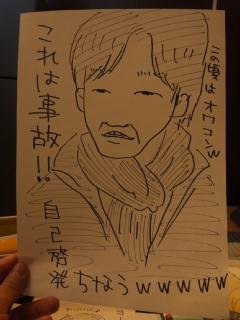 この頃はオワコンw
これは事故!!
自己啓発ちなうwwwww